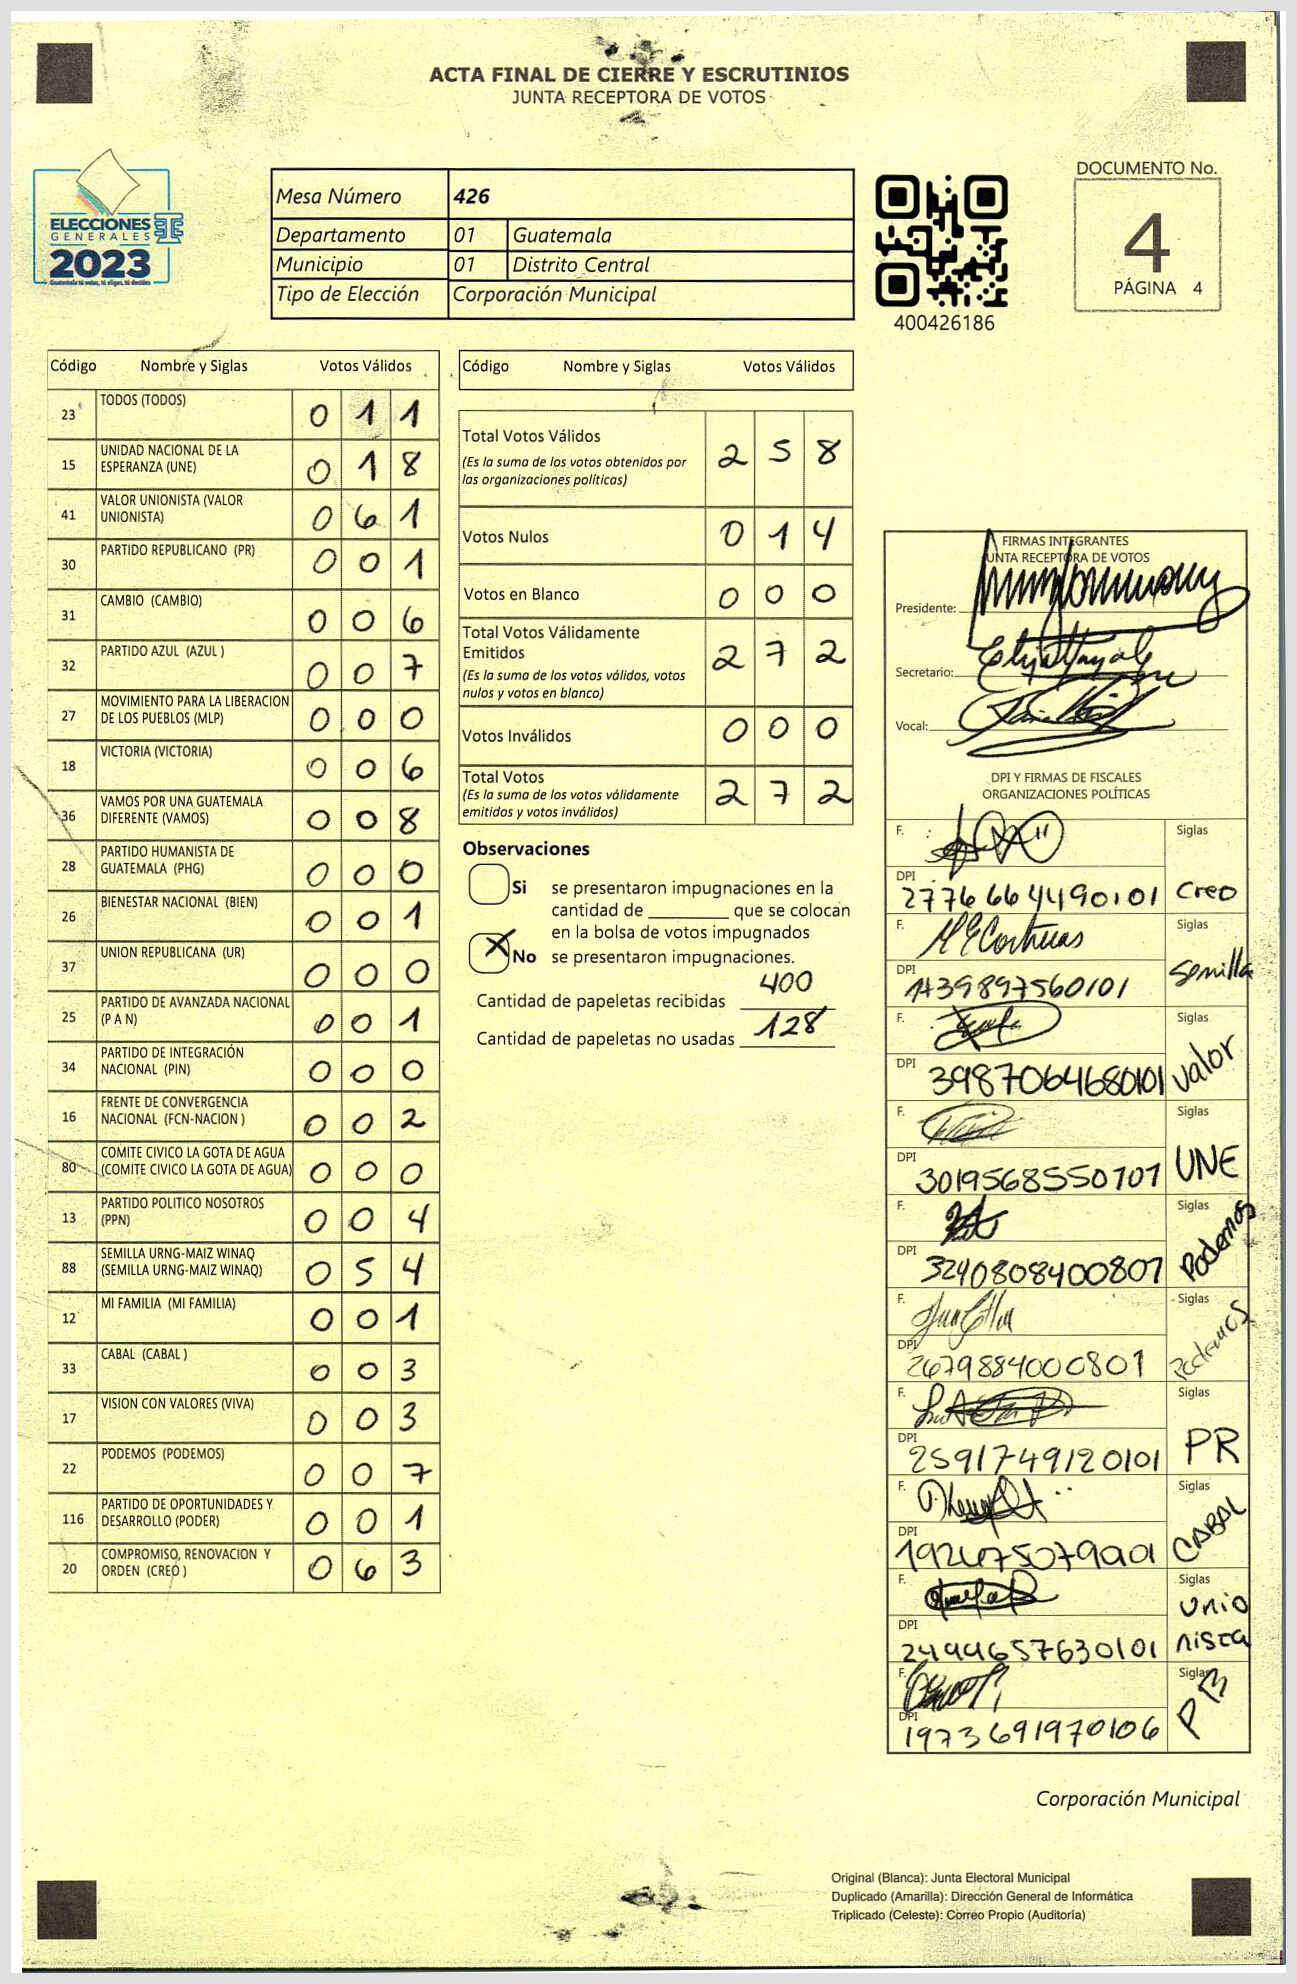 ACTA FINAL DE CIERRE Y ESCRUTINIOS
JUNTA RECEPTORA DE VOTOS
ELECCIONES
GENERALES
2023
Guatemala tú votas, tú eliges, tú decides
Mesa Número 426
Departamento 01 Guatemala
Municipio 01 Distrito Central
Tipo de Elección Corporación Municipal
400426186
DOCUMENTO No.
4
PÁGINA 4
Código Nombre y Siglas Votos Válidos
23 TODOS (TODOS) 0 1 1
15 UNIDAD NACIONAL DE LA
ESPERANZA (UNE) 0 1 8
41 VALOR UNIONISTA (VALOR
UNIONISTA) 0 6 1
30 PARTIDO REPUBLICANO (PR) 0 0 1
31 CAMBIO (CAMBIO) 0 0 6
32 PARTIDO AZUL (AZUL ) 0 0 7
27 MOVIMIENTO PARA LA LIBERACION
DE LOS PUEBLOS (MLP) 0 0 0
18 VICTORIA (VICTORIA) 0 0 6
36 VAMOS POR UNA GUATEMALA
DIFERENTE (VAMOS) 0 0 8
28 PARTIDO HUMANISTA DE
GUATEMALA (PHG) 0 0 0
26 BIENESTAR NACIONAL (BIEN) 0 0 1
37 UNION REPUBLICANA (UR) 0 0 0
25 PARTIDO DE AVANZADA NACIONAL
(P A N) 0 0 1
34 PARTIDO DE INTEGRACIÓN
NACIONAL (PIN) 0 0 0
16 FRENTE DE CONVERGENCIA
NACIONAL (FCN-NACION ) 0 0 2
80 COMITE CIVICO LA GOTA DE AGUA
(COMITE CIVICO LA GOTA DE AGUA) 0 0 0
13 PARTIDO POLITICO NOSOTROS
(PPN) 0 0 4
88 SEMILLA URNG-MAIZ WINAQ
(SEMILLA URNG-MAIZ WINAQ) 0 5 4
12 MI FAMILIA (MI FAMILIA) 0 0 1
33 CABAL (CABAL ) 0 0 3
17 VISION CON VALORES (VIVA) 0 0 3
22 PODEMOS (PODEMOS) 0 0 7
116 PARTIDO DE OPORTUNIDADES Y
DESARROLLO (PODER) 0 0 1
20 COMPROMISO, RENOVACION Y
ORDEN (CREO ) 0 6 3
Código Nombre y Siglas Votos Válidos
Total Votos Válidos 2 5 8
(Es la suma de los votos obtenidos por
las organizaciones políticas)
Votos Nulos 0 1 4
Votos en Blanco 0 0 0
Total Votos Válidamente
Emitidos 2 7 2
(Es la suma de los votos válidos, votos
nulos y votos en blanco)
Votos Inválidos 0 0 0
Total Votos 2 7 2
(Es la suma de los votos válidamente
emitidos y votos inválidos)
Observaciones
Si se presentaron impugnaciones en la
cantidad de ________ que se colocan
en la bolsa de votos impugnados
X No se presentaron impugnaciones.
Cantidad de papeletas recibidas 400
Cantidad de papeletas no usadas 128
FIRMAS INTEGRANTES
JUNTA RECEPTORA DE VOTOS
Presidente:
Secretario:
Vocal:
DPI Y FIRMAS DE FISCALES
ORGANIZACIONES POLÍTICAS
F. Siglas
DPI 2776664490101 Creo
F. Siglas
DPI Semilla
F. Siglas
DPI 3987064680101 Valor
F. Siglas
DPI 3019568550707 UNE
F. Siglas
DPI 3240808400807 Podemos
F. Siglas
DPI 2679884000801 Podemos
F. Siglas
DPI 2591749120101 PR
F. Siglas
DPI CABAL
F. Siglas
DPI 2499657630101 unio
nista
F. Siglas
DPI 1973691970106
Corporación Municipal
Original (Blanca): Junta Electoral Municipal
Duplicado (Amarilla): Dirección General de Informática
Triplicado (Celeste): Correo Propio (Auditoría)